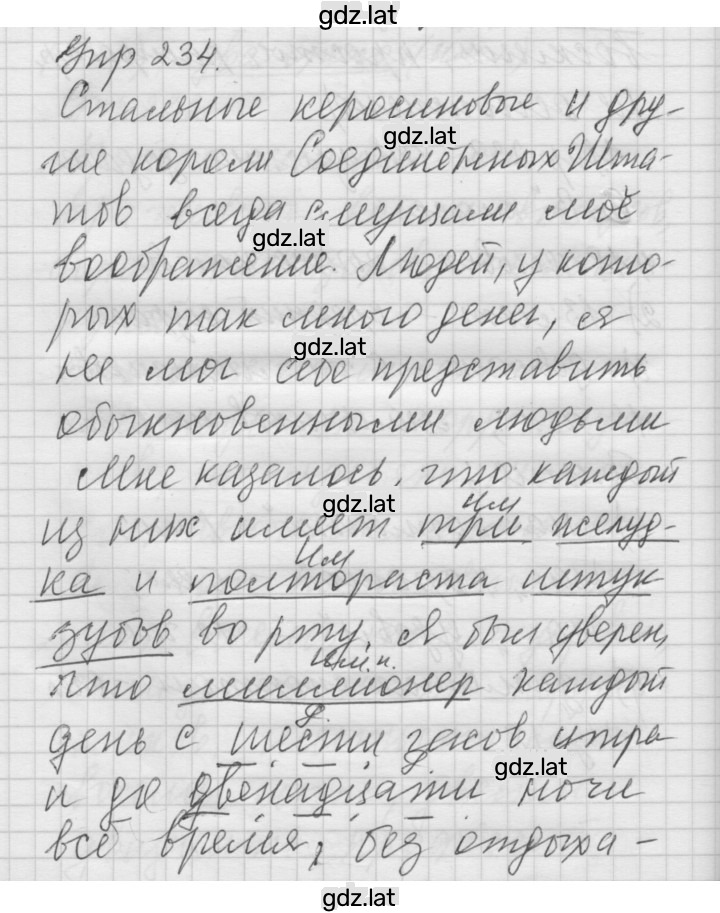 gdz.lat
Упр 234.
Стальные керосиновые и дру-
gdz.lat
гие короли Соединённых Шта-
тов всегда смущали моё
gdz.lat
воображение. Людей, у кото-
рых так много денег, я
gdz.lat
не мог себе представить
обыкновенными людьми
Мне казалось, что каждый
gdz.lat
им
из них имеет три желуд-
им
ка и полтораста штук
зубов во рту. Я был уверен,
им. п.
что миллионер каждый
день с шести часов утра
gdz.lat
и до двенадцати ночи
всё время, без отдыха -
gdz.lat